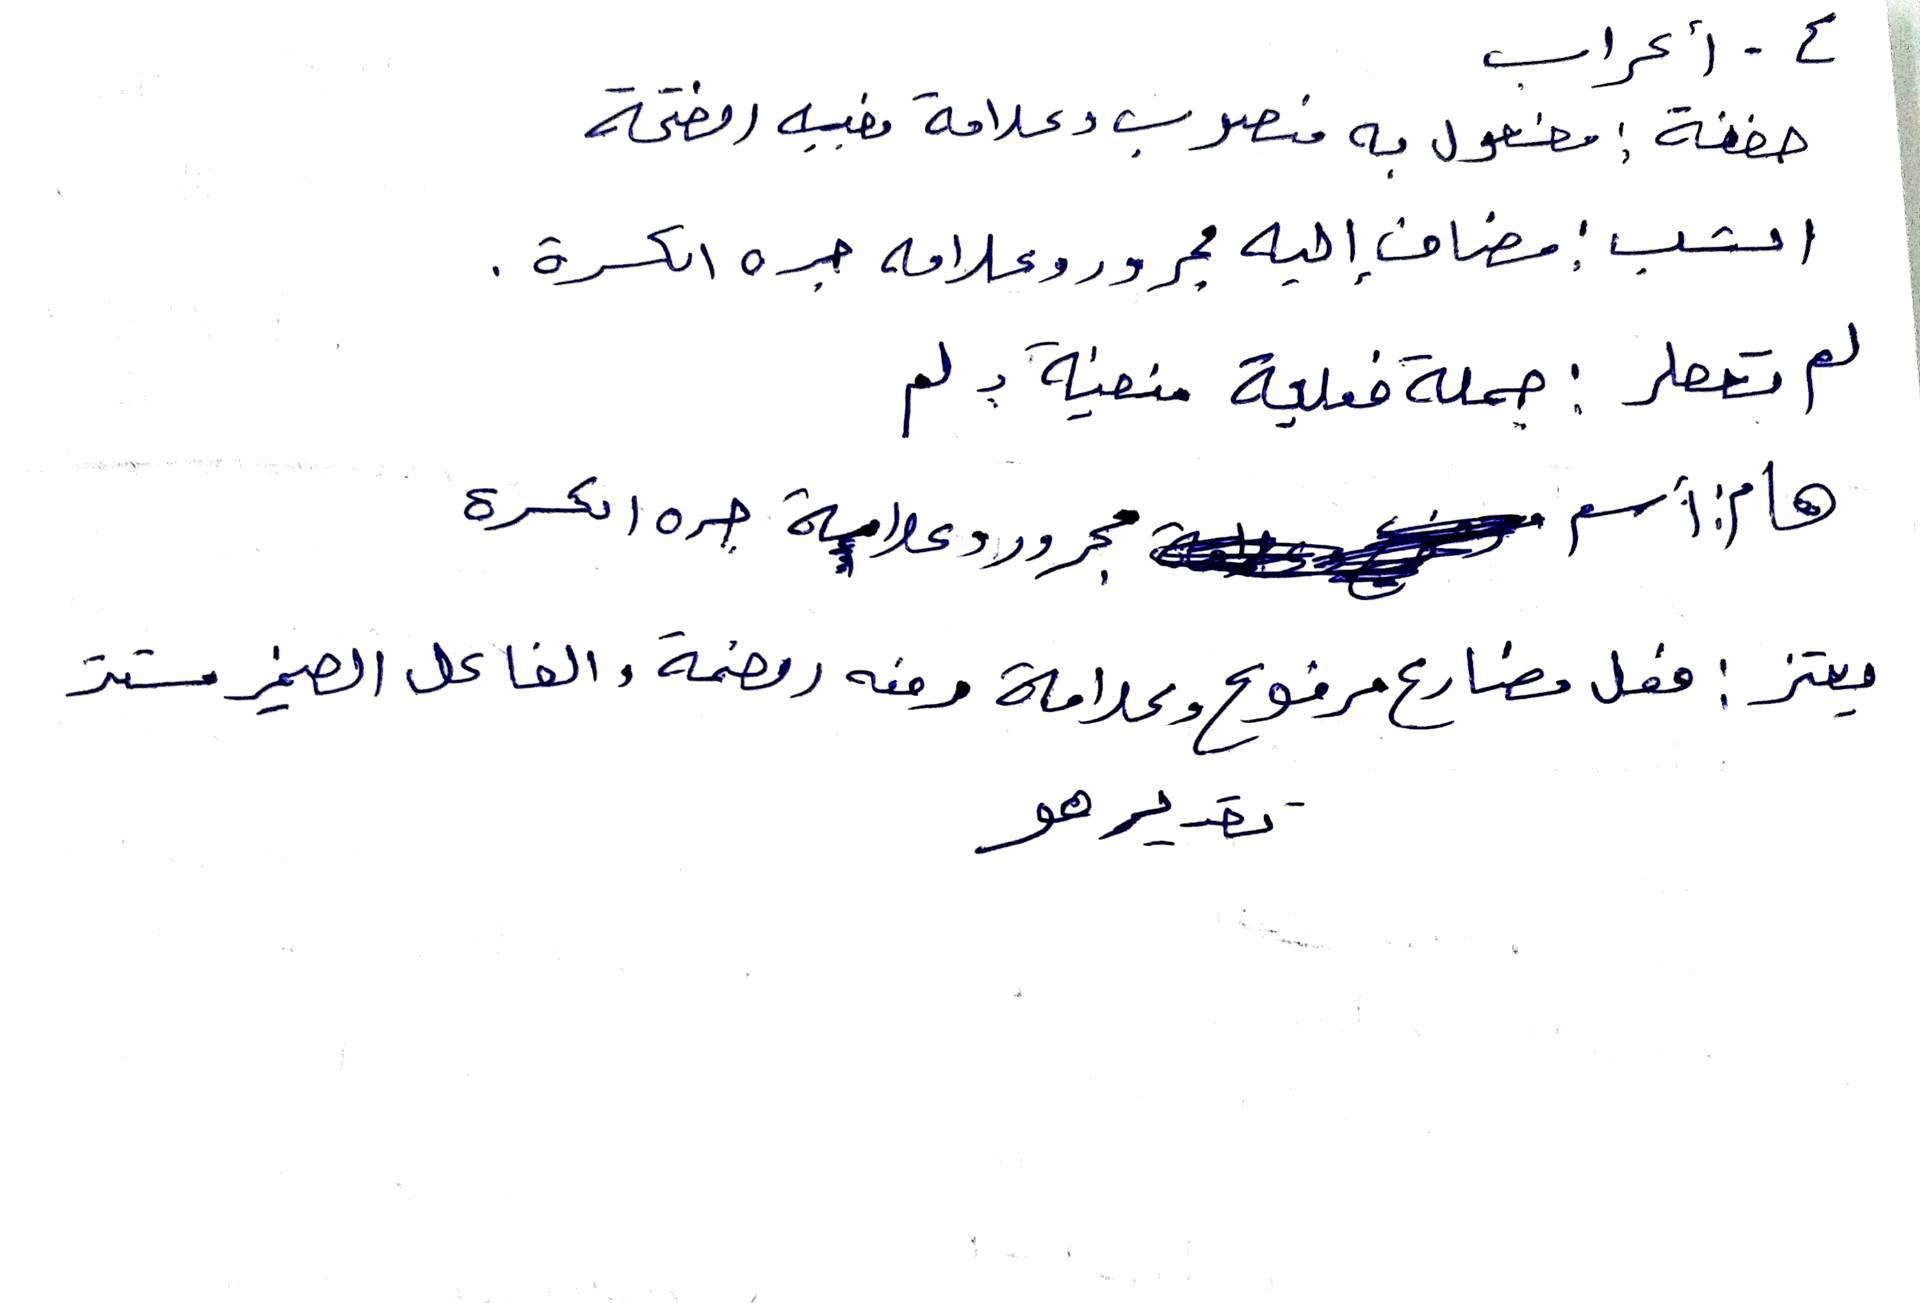 ٤ - أعراب
حفنة : مفعول به منصوب وعلامة نصبه الفتحة
الشب : مضاف إليه مجرور وعلامه جره الكسرة .
لم تعطر : جملة فعلية منفية بـ لم
هام : أسم مجرور وعلامة جره الكسرة
يعتز : فعل مضارع مرفوع وعلامة رفعه الضمة والفاعل الضمير مستتر
تقديرهو